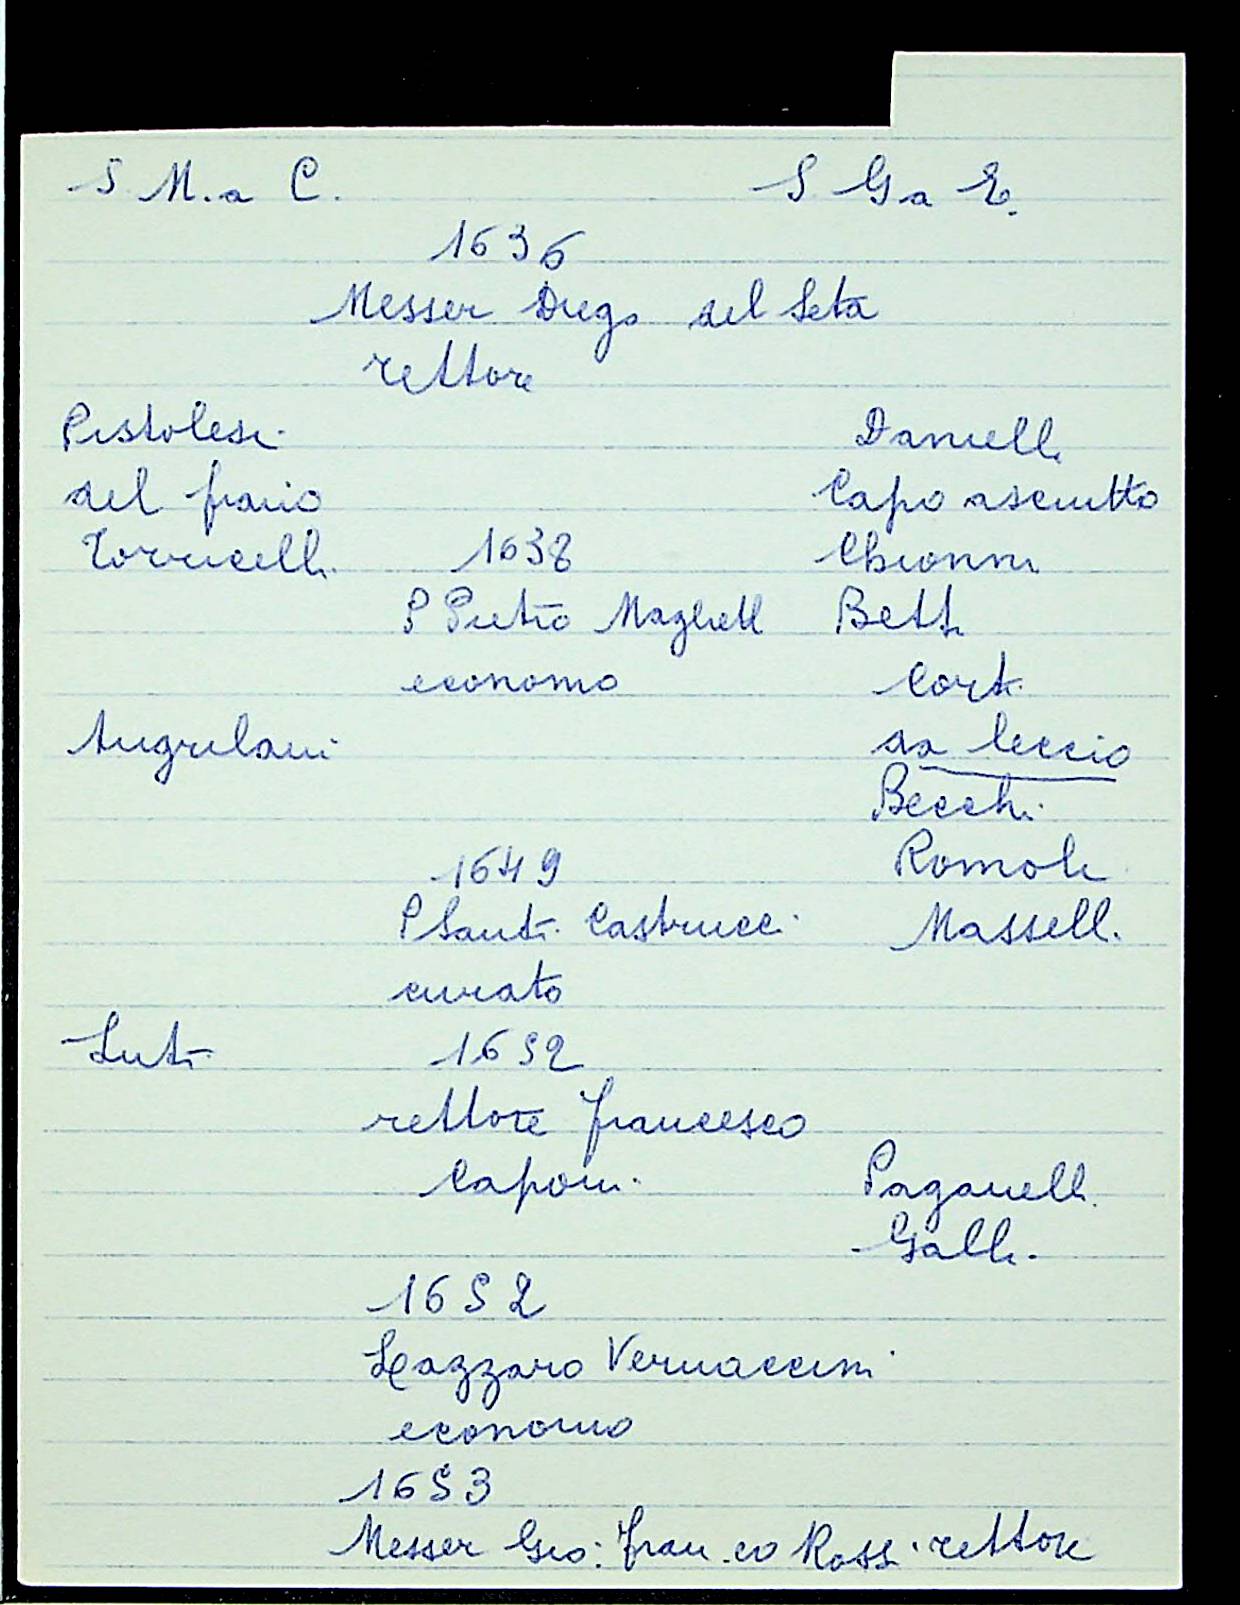 S M.a C. S G a E.
1636
Messer Diego del Seta
rettore
Pistolesi Danielli
del frario Capo asciutto
Torricelli 1638 Chionni
P Pietro Maglietti Betti
economo Corti
Angiolani da leccio
Becchi
1649 Romoli
P Santi Castrucci Masselli
curato
Luti 1652
rettore francesco
Caponi Paganelli
Galli
1652
Lazzaro Vernaccini
economo
1653
Messer Gio: fran.co Rossi rettore